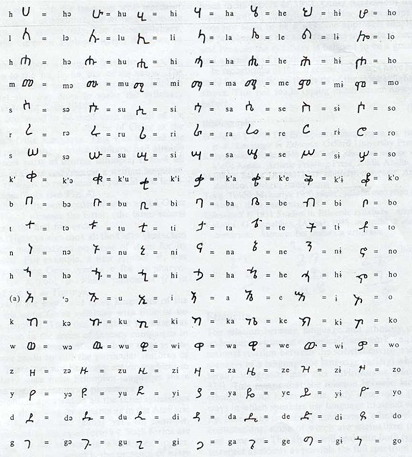 h ሀ = hə ሁ = hu ሂ = hi ሃ = ha ሄ = he ህ = hɨ ሆ = ho
l ለ = lə ሉ = lu ሊ = li ላ = la ሌ = le ል = lɨ ሎ = lo
h ሐ = hə ሑ = hu ሒ = hi ሓ = ha ሔ = he ሕ = hɨ ሖ = ho
m መ = mə ሙ = mu ሚ = mi ማ = ma ሜ = me ም = mɨ ሞ = mo
s ሰ = sə ሱ = su ሲ = si ሳ = sa ሴ = se ስ = sɨ ሶ = so
r ረ = rə ሩ = ru ሪ = ri ራ = ra ሬ = re ር = rɨ ሮ = ro
s ሠ = sə ሡ = su ሢ = si ሣ = sa ሤ = se ሥ = sɨ ሦ = so
k' ቀ = k'ə ቁ = k'u ቂ = k'i ቃ = k'a ቄ = k'e ቅ = k'ɨ ቆ = k'o
b በ = bə ቡ = bu ቢ = bi ባ = ba ቤ = be ብ = bɨ ቦ = bo
t ተ = tə ቱ = tu ቲ = ti ታ = ta ቴ = te ት = tɨ ቶ = to
n ነ = nə ኑ = nu ኒ = ni ና = na ኔ = ne ን = nɨ ኖ = no
h ኀ = hə ኁ = hu ኂ = hi ኃ = ha ኄ = he ኅ = hɨ ኆ = ho
(a) አ = 'ə ኡ = u ኢ = i ኣ = a ኤ = e እ = ɨ ኦ = o
k ከ = kə ኩ = ku ኪ = ki ካ = ka ኬ = ke ክ = kɨ ኮ = ko
w ወ = wə ዉ = wu ዊ = wi ዋ = wa ዌ = we ው = wɨ ዎ = wo
z ዘ = zə ዙ = zu ዚ = zi ዛ = za ዜ = ze ዝ = zɨ ዞ = zo
y የ = yə ዩ = yu ዪ = yi ያ = ya ዬ = ye ይ = yɨ ዮ = yo
d ደ = də ዱ = du ዲ = di ዳ = da ዴ = de ድ = dɨ ዶ = do
g ገ = gə ጉ = gu ጊ = gi ጋ = ga ጌ = ge ግ = gɨ ጎ = go